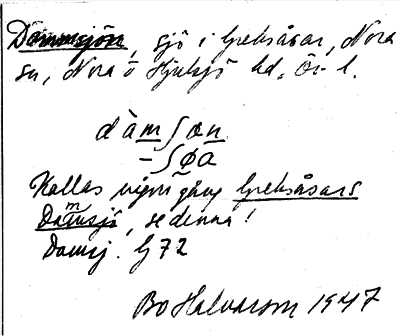 Dammsjön, sjö i Greksåsar, Nora
sn, Nora o Hjulsjö hd, Ör l.
dàmʃøn
-ʃøa
Kallas någon gång Greksåsars
Dammsjö, se denna!
Damsj. G 72
Bo Halvarson 1947